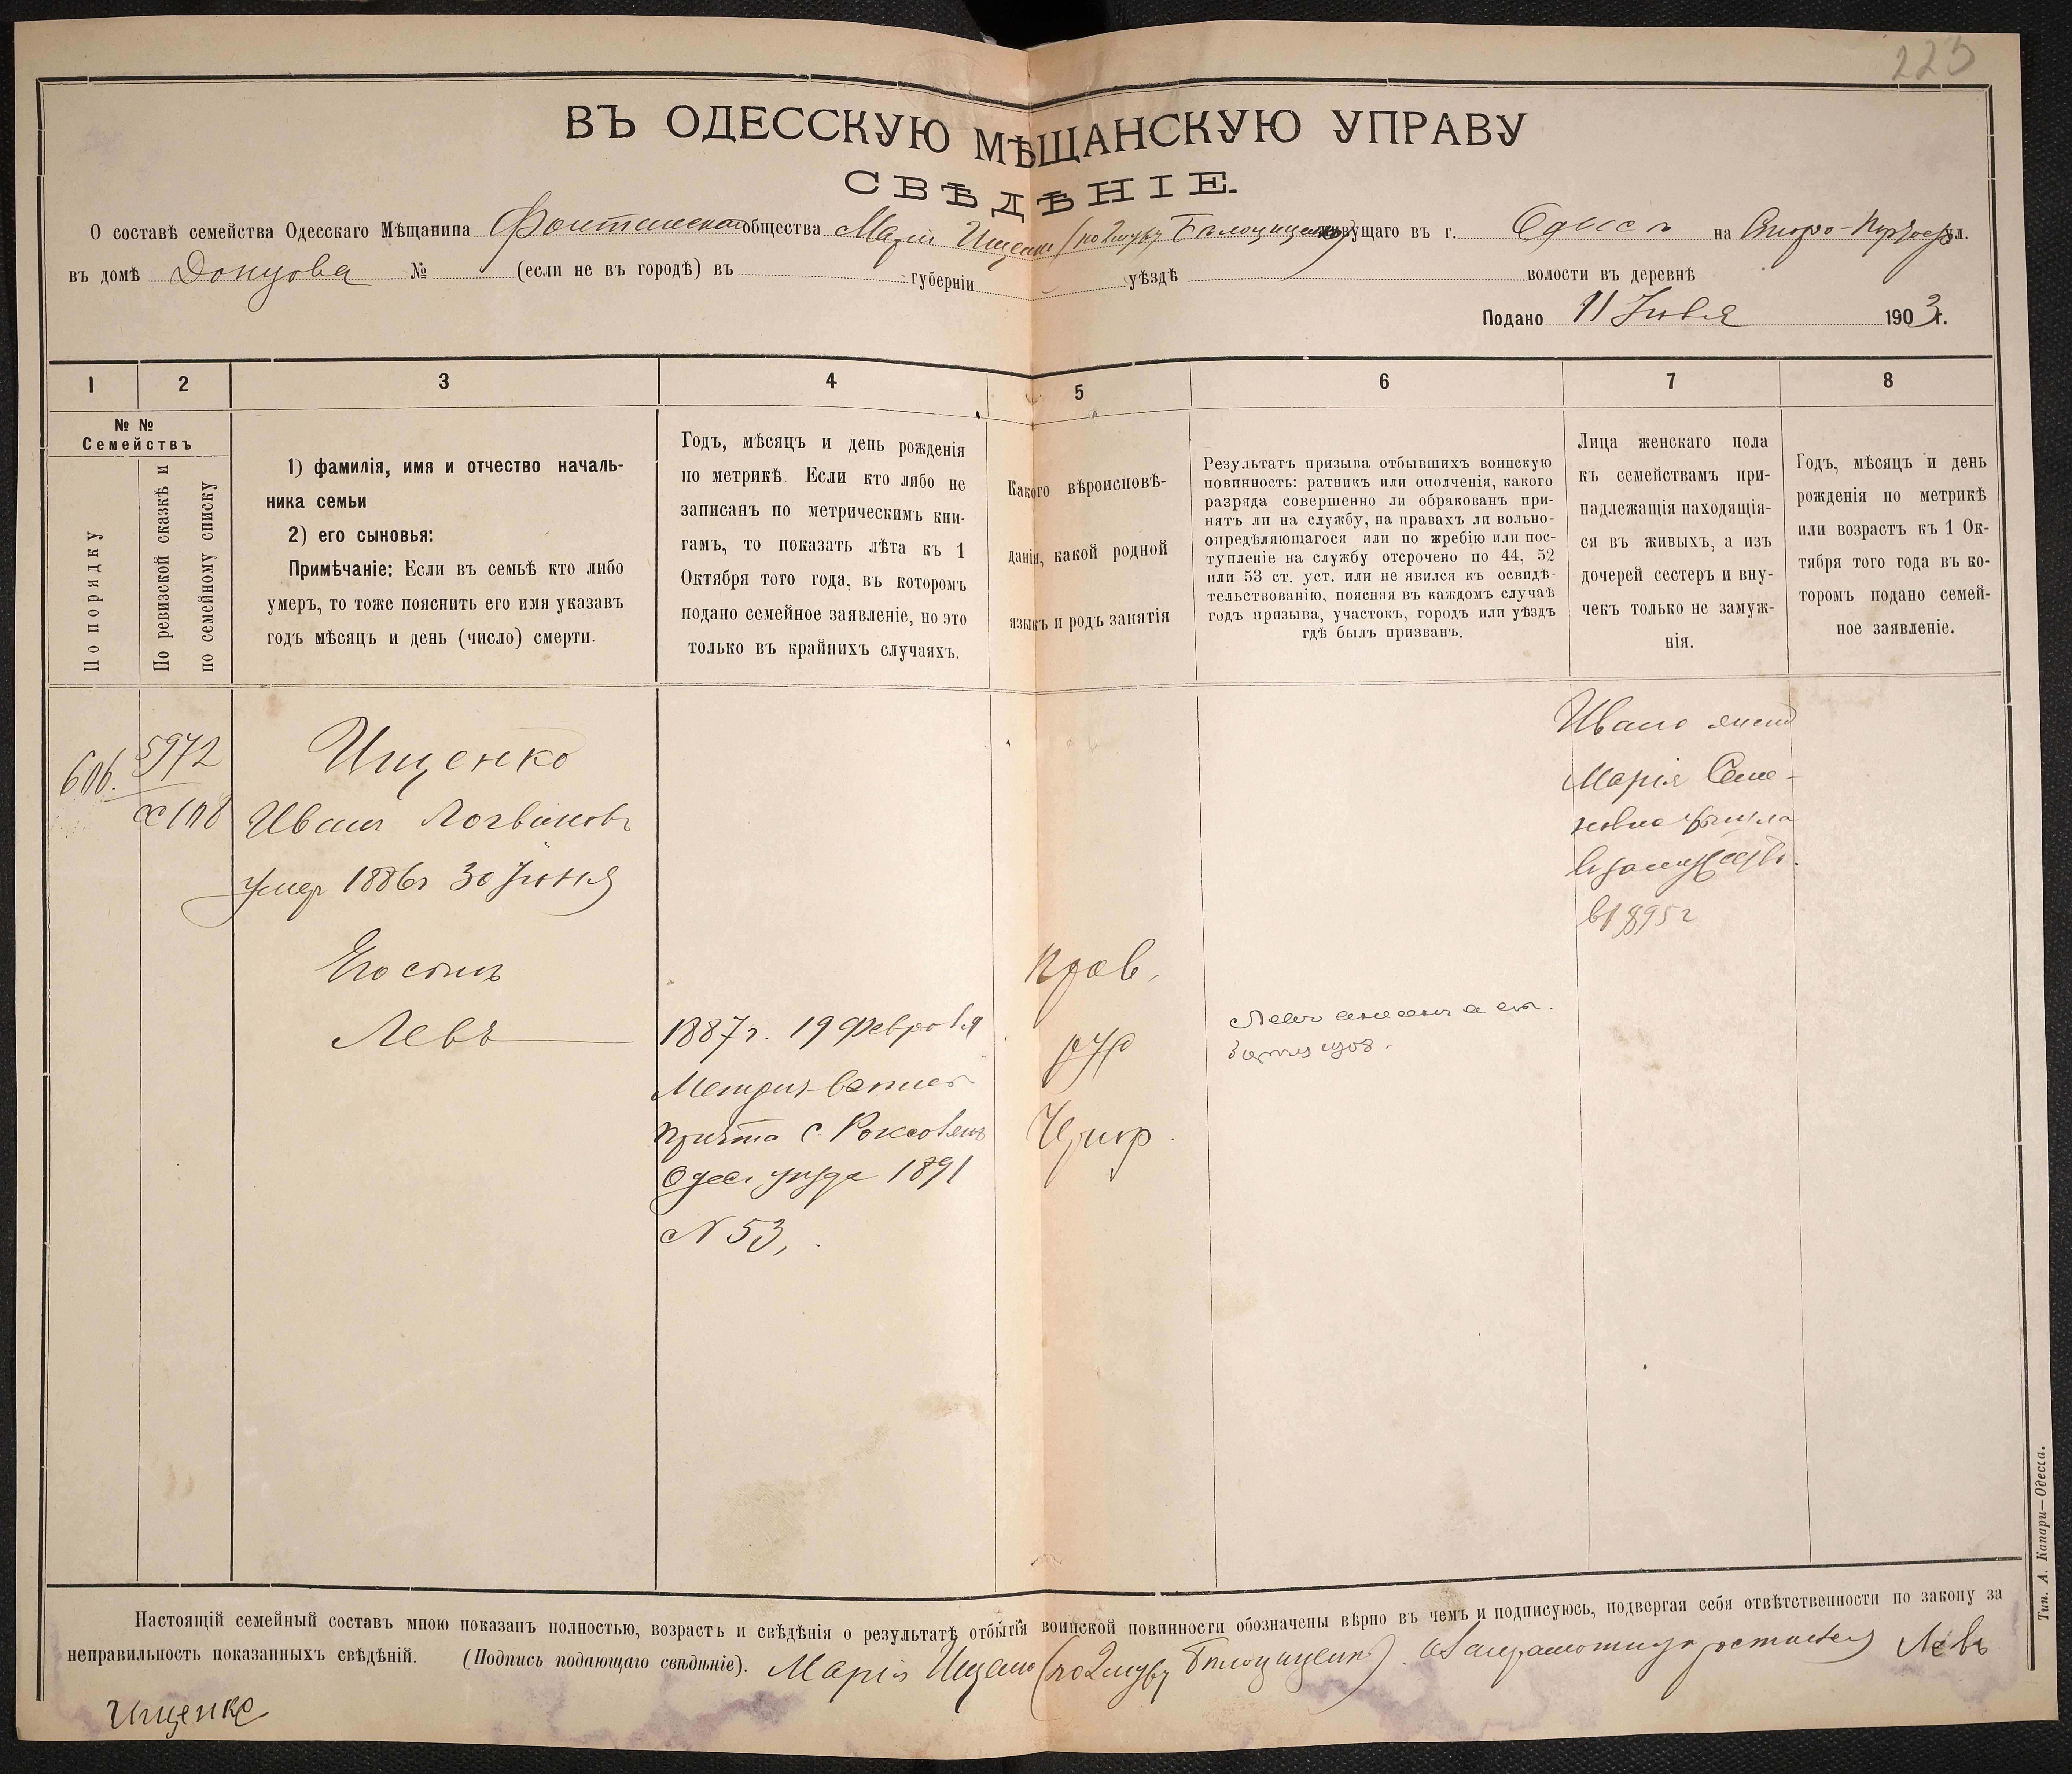 225
ВЪ ОДЕССКУЮ МѢЩАНСКУЮ УПРАВУ
СВѢДѢНІЕ.
О составѣ семейства Одесскаго Мѣщанина Фонтанскаго общества Маріи Ищенко (по 2 мужу живущаго въ г. Одессѣ на ул.
въ домѣ Донцова № (если не въ городѣ) въ губерніи уѣздѣ волости въ деревнѣ
Подано 11 Іюля 1903 г.
1 2 3 4 5 6 7 8
№ №
Семействъ
По порядку
По ревизской сказкѣ и
по семейному списку
1) фамилія, имя и отчество началь-
ника семьи
2) его сыновья:
Примѣчаніе: Если въ семьѣ кто либо
умеръ, то тоже пояснить его имя указавъ
годъ мѣсяцъ и день (число) смерти.
Годъ, мѣсяцъ и день рожденія
по метрикѣ. Если кто либо не
записанъ по метрическимъ кни-
гамъ, то показать лѣта къ 1
Октября того года, въ которомъ
подано семейное заявленіе, но это
только въ крайнихъ случаяхъ.
Какого вѣроисповѣ-
данія, какой родной
языкъ и родъ занятія
Результатъ призыва отбывшихъ воинскую
повинность: ратникъ или ополченія, какого
разряда совершенно ли обракованъ при-
нятъ ли на службу, на правахъ ли вольно-
опредѣляющагося или по жребію или пос-
тупленіе на службу отсрочено по 44, 52
или 53 ст. уст. или не явился къ освидѣ-
тельствованію, поясняя въ каждомъ случаѣ
годъ призыва, участокъ, городъ или уѣздъ
гдѣ былъ призванъ.
Лица женскаго пола
къ семействамъ при-
надлежащія находящія-
ся въ живыхъ, а изъ
дочерей сестеръ и вну-
чекъ только не замуж-
нія.
Годъ, мѣсяцъ и день
рожденія по метрикѣ
или возрастъ къ 1 Ок-
тября того года въ ко-
торомъ подано семей-
ное заявленіе.
606. 5972
х 108
Ищенко
Иванъ Логвиновъ
умер 1886г 30 Іюня
Его сынъ
Левъ
1887г. 19 Февраля
Метрич
причта с.
Одес. уѣзда 1891
N 53,
Прав,
рус
Ивана жена
Марія Семе-
новна вышла
в замужество.
в 1895 г
Настоящій семейный составъ мною показанъ полностью, возрастъ и свѣдѣнія о результатѣ отбытія воинской повинности обозначены вѣрно въ чемъ и подписуюсь, подвергая себя отвѣтственности по закону за
неправильность показанныхъ свѣдѣній. (Подпись подающаго свѣдѣніе). Марія Ищенко (по 2 мужу Левъ
Ищенко
Тип. А. Капари—Одесса.